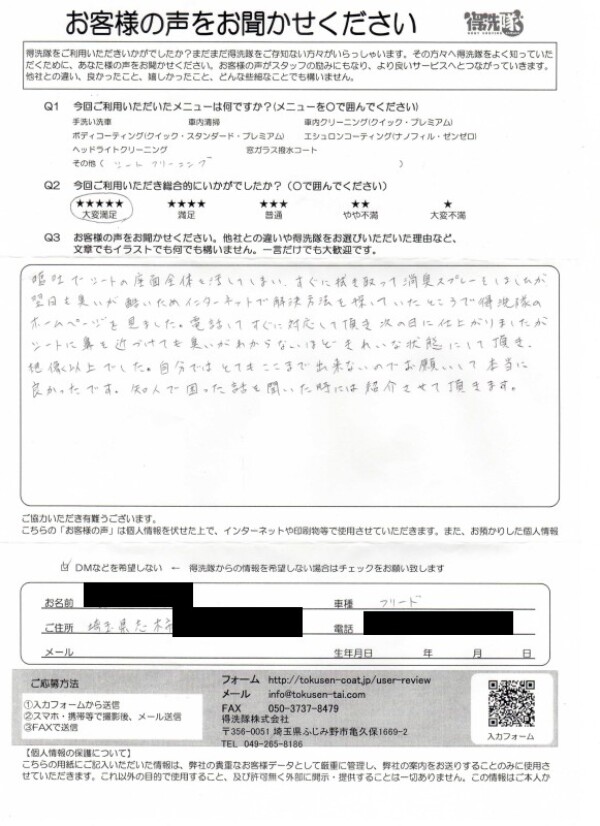 お客様の声をお聞かせください
得洗隊
得洗隊をご利用いただきいかがでしたか？まだまだ得洗隊をご存知ない方々がいらっしゃいます。その方々へ得洗隊をよく知っていた
だくために、あなた様の声をお聞かせください。お客様の声がスタッフの励みにもなり、より良いサービスへとつながっていきます。
他社との違い、良かったこと、嬉しかったこと、どんな些細なことでも構いません。
Q1 今回ご利用いただいたメニューは何ですか？(メニューを〇で囲んでください)
手洗い洗車 車内清掃 車内クリーニング(クイック・プレミアム)
ボディコーティング(クイック・スタンダード・プレミアム) エシュロンコーティング(ナノフィル・ゼンゼロ)
ヘッドライトクリーニング 窓ガラス撥水コート
その他 ( シートクリーニング )
Q2 今回ご利用いただき総合的にいかがでしたか？（〇で囲んでください）
★★★★★ ★★★★ ★★★ ★★ ★
大変満足 満足 普通 やや不満 大変不満
Q3 お客様の声をお聞かせください。他社との違いや得洗隊をお選びいただいた理由など、
文章でもイラストでも何でも構いません。一言だけでも大歓迎です。
嘔吐でシートの座面全体を汚してしまい、すぐに拭き取って消臭スプレーをしましたが
翌日も臭いが酷いためインターネットで解決方法を探していたところで得洗隊の
ホームページを見ました。電話してすぐに対応して頂き次の日に仕上がりましたが
シートに鼻を近づけても臭いがわからないほどきれいな状態にして頂き、
想像以上でした。自分ではとてもここまで出来ないのでお願いして本当に
良かったです。知人で困った話を聞いた時には紹介させて頂きます。
ご協力いただき有難うございます。
こちらの「お客様の声」は個人情報を伏せた上で、インターネットや印刷物等で使用させていただきます。また、お預かりした個人情報
☑ DMなどを希望しない ← 得洗隊からの情報を希望しない場合はチェックをお願い致します
お名前 車種 フリード
ご住所 埼玉県志木市 電話
メール 生年月日 年 月 日
ご応募方法
①入力フォームから送信
②スマホ・携帯等で撮影後、メール送信
③FAXで送信
フォーム http://tokusen-coat.jp/user-review
メール info@tokusen-tai.com
FAX 050-3737-8479
得洗隊株式会社
〒356-0051 埼玉県ふじみ野市亀久保1669-2
TEL 049-265-8186
入力フォーム
【個人情報の保護について】
こちらの用紙にご記入いただいた情報は、弊社の貴重なお客様データとして厳重に管理し、弊社の案内をお送りすることのみに使用さ
せていただきます。これ以外の目的で使用すること、及び許可無く外部に開示・提供することは一切ありません。この情報はご本人か